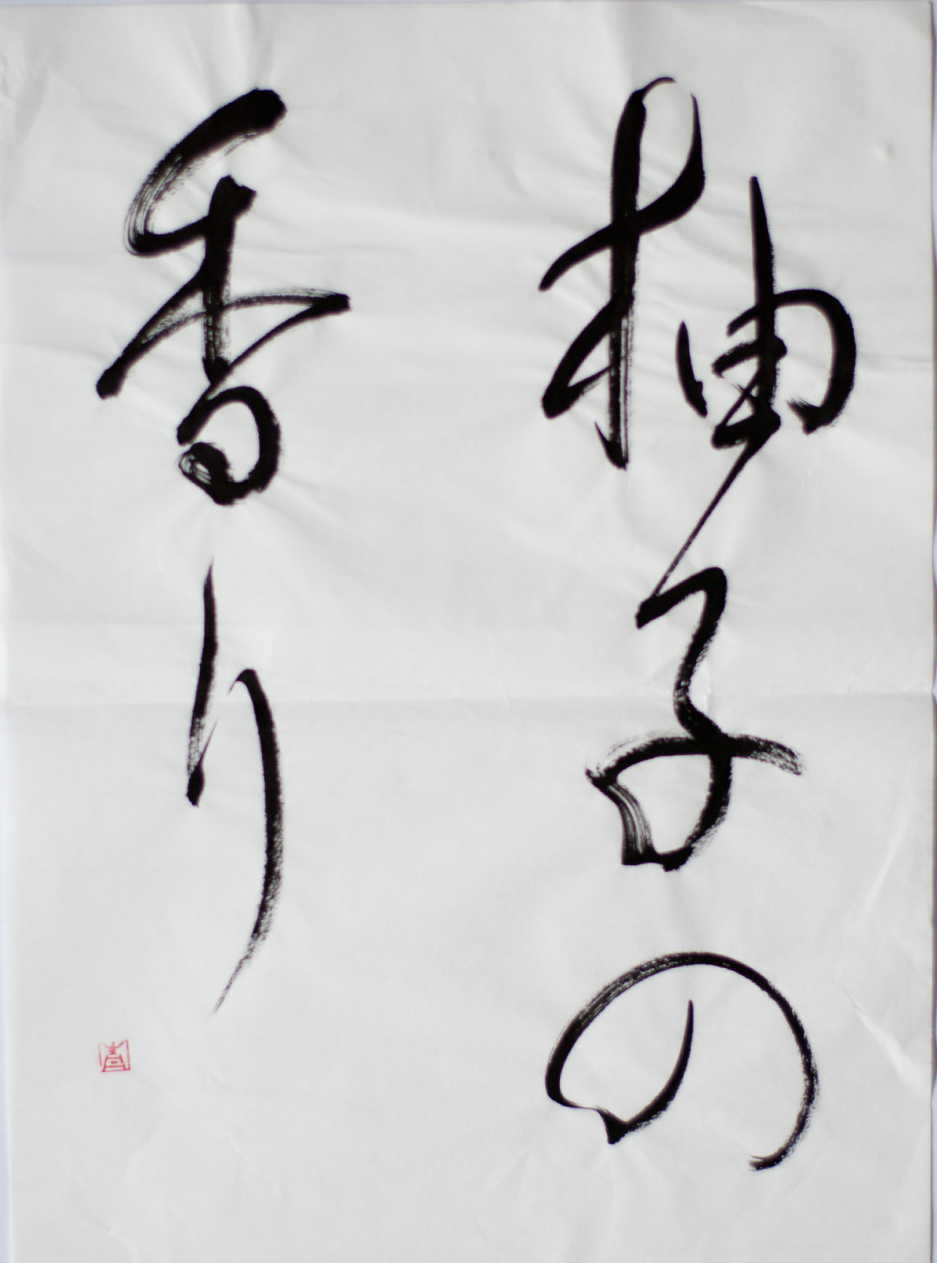 柚子の
香り